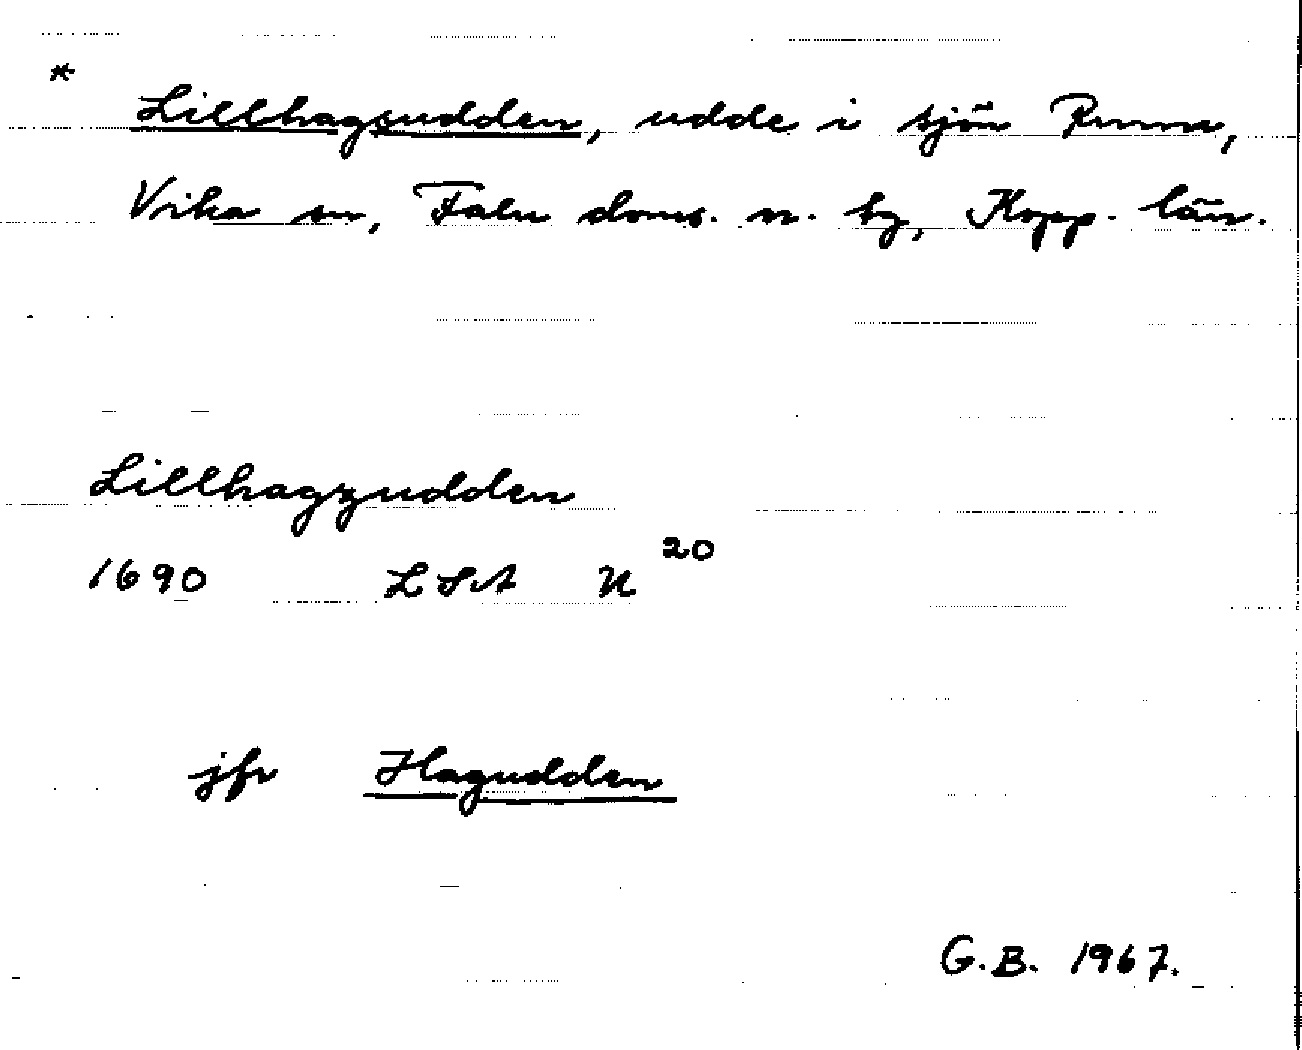 * Lillhagsudden, udde i sjön Runn,
Vika sn, Falu doms. n. by, Kopp. län.
Lillhagzudden
1690 LSA U 20
jfr Hagudden
G.B. 1967.